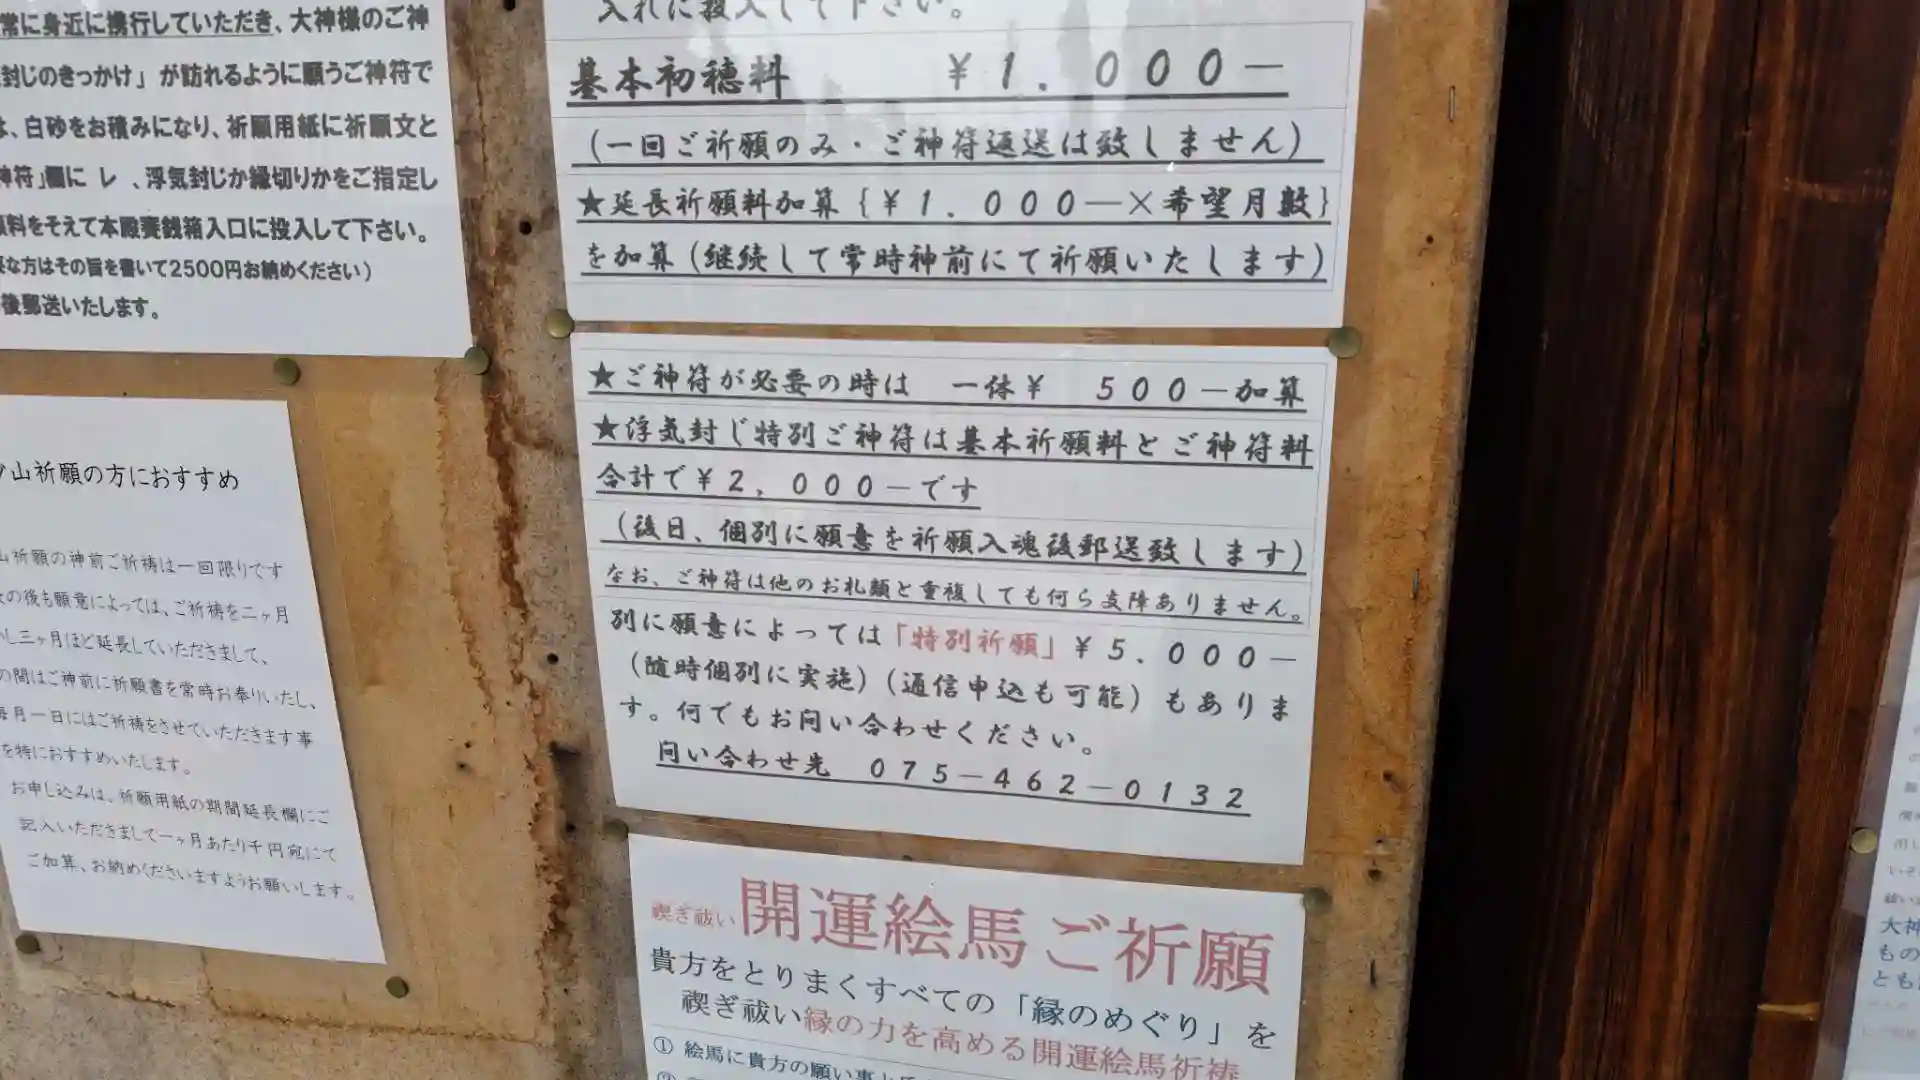 常に身近に携行していただき、大神様のご神
封じのきっかけ」が訪れるように願うご神符で
は、白砂をお積みになり、祈願用紙に祈願文と
神符」欄に レ 、浮気封じか縁切りかをご指定し
料をそえて本殿賽銭箱入口に投入して下さい。
な方はその旨を書いて2500円お納めください)
後郵送いたします。
山祈願の方におすすめ
山祈願の神前ご祈祷は一回限りです
の後も願意によっては、ご祈祷を二ヶ月
し三ヶ月ほど延長していただきまして、
の間はご神前に祈願書を常時お奉りいたし、
毎月一日にはご祈祷をさせていただきます事
を特におすすめいたします。
お申し込みは、祈願用紙の期間延長欄にご
記入いただきまして一ヶ月あたり千円宛にて
ご加算、お納めくださいますようお願いします。
入れに投入して下さい。
基本初穂料 ¥1.000−
(一回ご祈願のみ・ご神符返送は致しません)
★延長祈願料加算{¥1.000−×希望月数}
を加算(継続して常時神前にて祈願いたします)
★ご神符が必要の時は 一体¥ 500−加算
★浮気封じ特別ご神符は基本祈願料とご神符料
合計で¥2,000−です
(後日、個別に願意を祈願入魂後郵送致します)
なお、ご神符は他のお札類と重複しても何ら支障ありません。
別に願意によっては「特別祈願」¥5.000−
(随時個別に実施)(通信申込も可能)もありま
す。何でもお問い合わせください。
問い合わせ先 075−462−0132
禊ぎ祓い 開運絵馬ご祈願
貴方をとりまくすべての「縁のめぐり」を
禊ぎ祓い縁の力を高める開運絵馬祈祷
① 絵馬に貴方の願い事と
大神
もの
とも